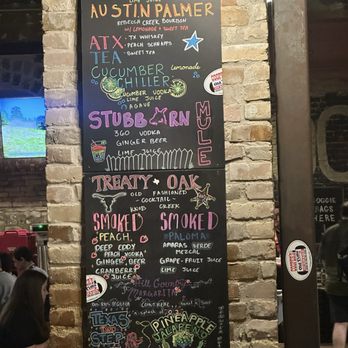 AUSTIN PALMER
REBECCA CREEK BOURBON
W/ LEMONADE + SWEET TEA
ATX
TEA
- TX WHISKEY
- PEACH SCHNAPPS
- SWEET TEA
CUCUMBER
CHILLER
Lemonade
CUCUMBER VODKA
LIME JUICE
AGAVE
STUBBORN
MULE
360 VODKA
GINGER BEER
LIME JUICE
TREATY + OAK
OLD FASHIONED
- COCKTAIL -
CREEK
SMOKED
PEACH
DEEP EDDY
PEACH VODKA
GINGER BEER
CRANBERRY
SMOKED
PALOMA
VERDE
MEZCAL
GRAPE-FRUIT JUICE
LIME JUICE
Hill Country
MARGARITA
TEXAS
STEP
PINEAPPLE
JALAPEÑO
BAGS
HERE